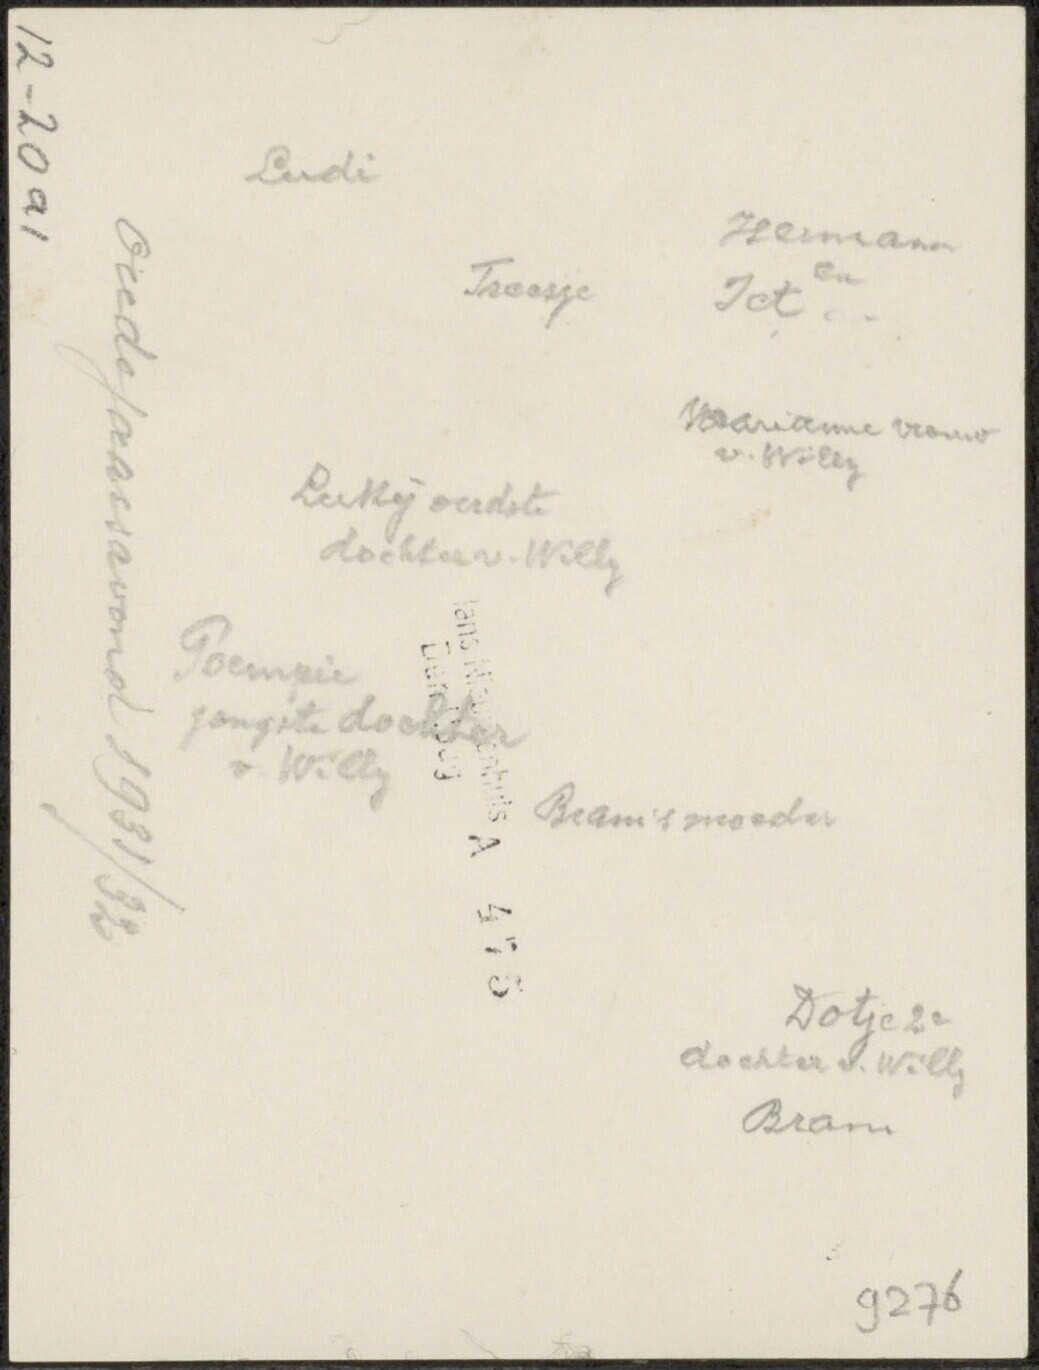 12-20a1
Oudejaarsavond 1931/32
Ludi
Treesje
Hermann
en
Jet . .
Marianne vrouw
v. Willy
Lukij oudste
dochter v. Willy
Poempie
jongste dochter
v. Willy
A 476
Bram's moeder
Dotje 2e
dochter v. Willy
Bram
9276